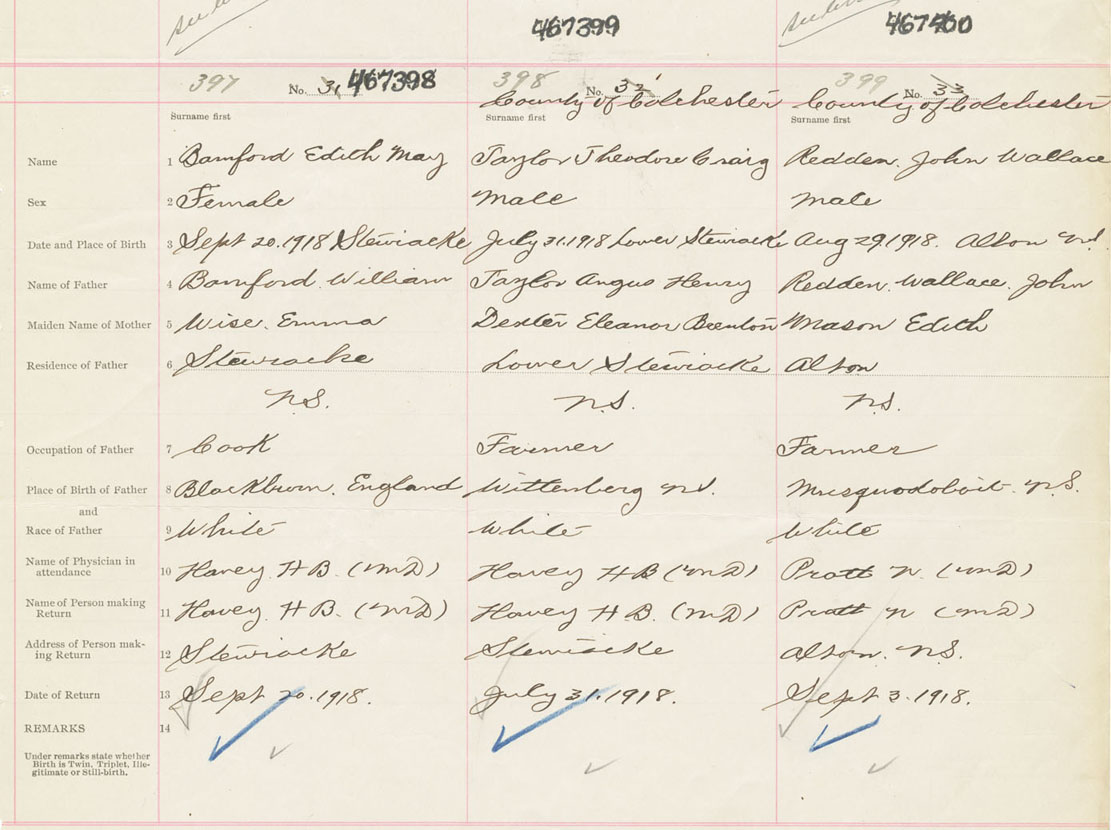 467399 467400
397 No. 31 467398 398 No. 32 399 No. 33
County of Colchester County of Colchester
Surname first Surname first Surname first
Name 1 Bamford Edith May Taylor Theodore Craig Redden, John Wallace
Sex 2 Female Male Male
Date and Place of Birth 3 Sept 20. 1918 Stewiacke July 31. 1918 Lower Stewiacke Aug 29. 1918. Alton N.S.
Name of Father 4 Bamford William Taylor Angus Henry Redden, Wallace John
Maiden Name of Mother 5 Wise, Emma Dexter Eleanor Brenton Mason Edith
Residence of Father 6 Stewiacke Lower Stewiacke Alton
N.S. N.S. N.S.
Occupation of Father 7 Cook Farmer Farmer
Place of Birth of Father 8 Blackburn, England Wittenberg N.S. Musquodoboit N.S.
and
Race of Father 9 White White White
Name of Physician in
attendance 10 Havey H B. (MD) Havey H B (MD) Pratt N. (MD)
Name of Person making
Return 11 Havey H B. (MD) Havey H B (MD) Pratt N (MD)
Address of Person mak-
ing Return 12 Stewiacke Stewiacke Alton. N.S.
Date of Return 13 Sept 20. 1918. July 31. 1918. Sept 3. 1918.
REMARKS 14
Under remarks state whether
Birth is Twin, Triplet, Ille-
gitimate or Still-birth.